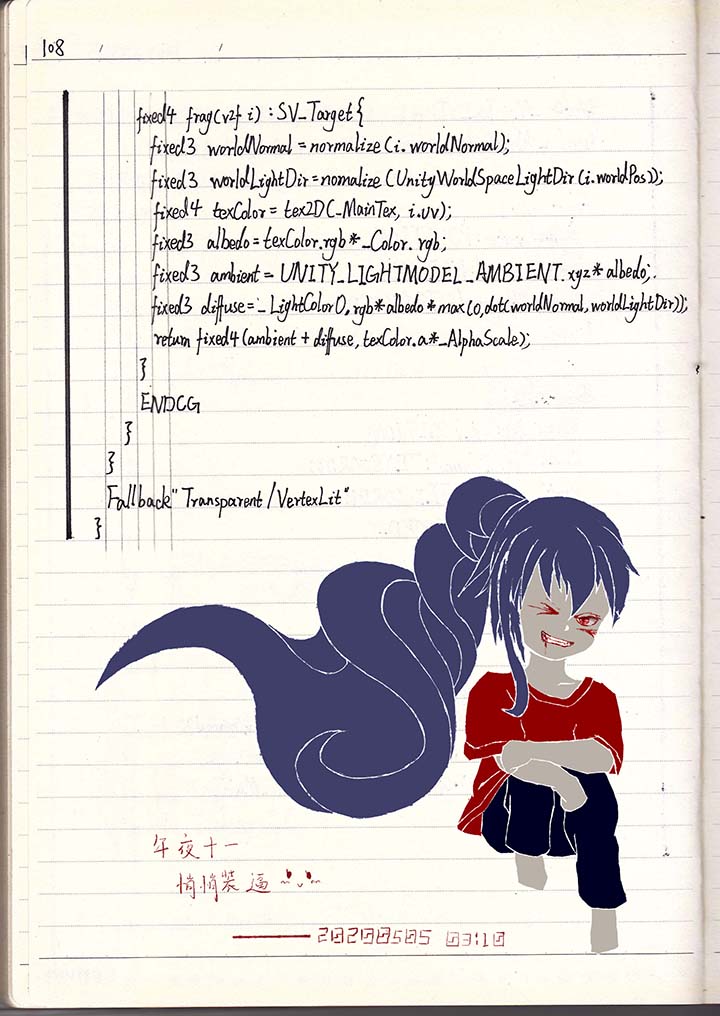 108
fixed4 frag(v2f i) : SV_Target{
fixed3 worldNormal = normalize(i.worldNormal);
fixed3 worldLightDir = nomalize(UnityWorldSpaceLightDir(i.worldPos));
fixed4 texColor = tex2D(_MainTex, i.uv);
fixed3 albedo = texColor.rgb*_Color.rgb;
fixed3 ambient = UNITY_LIGHTMODEL_AMBIENT.xyz*albedo;
fixed3 diffuse = _LightColor0.rgb*albedo*max(0,dot(worldNormal,worldLightDir));
return fixed4(ambient + diffuse, texColor.a*_AlphaScale);
}
ENDCG
}
}
Fallback"Transparent/VertexLit"
}
午夜十一
悄悄装逼
20200505 03:10